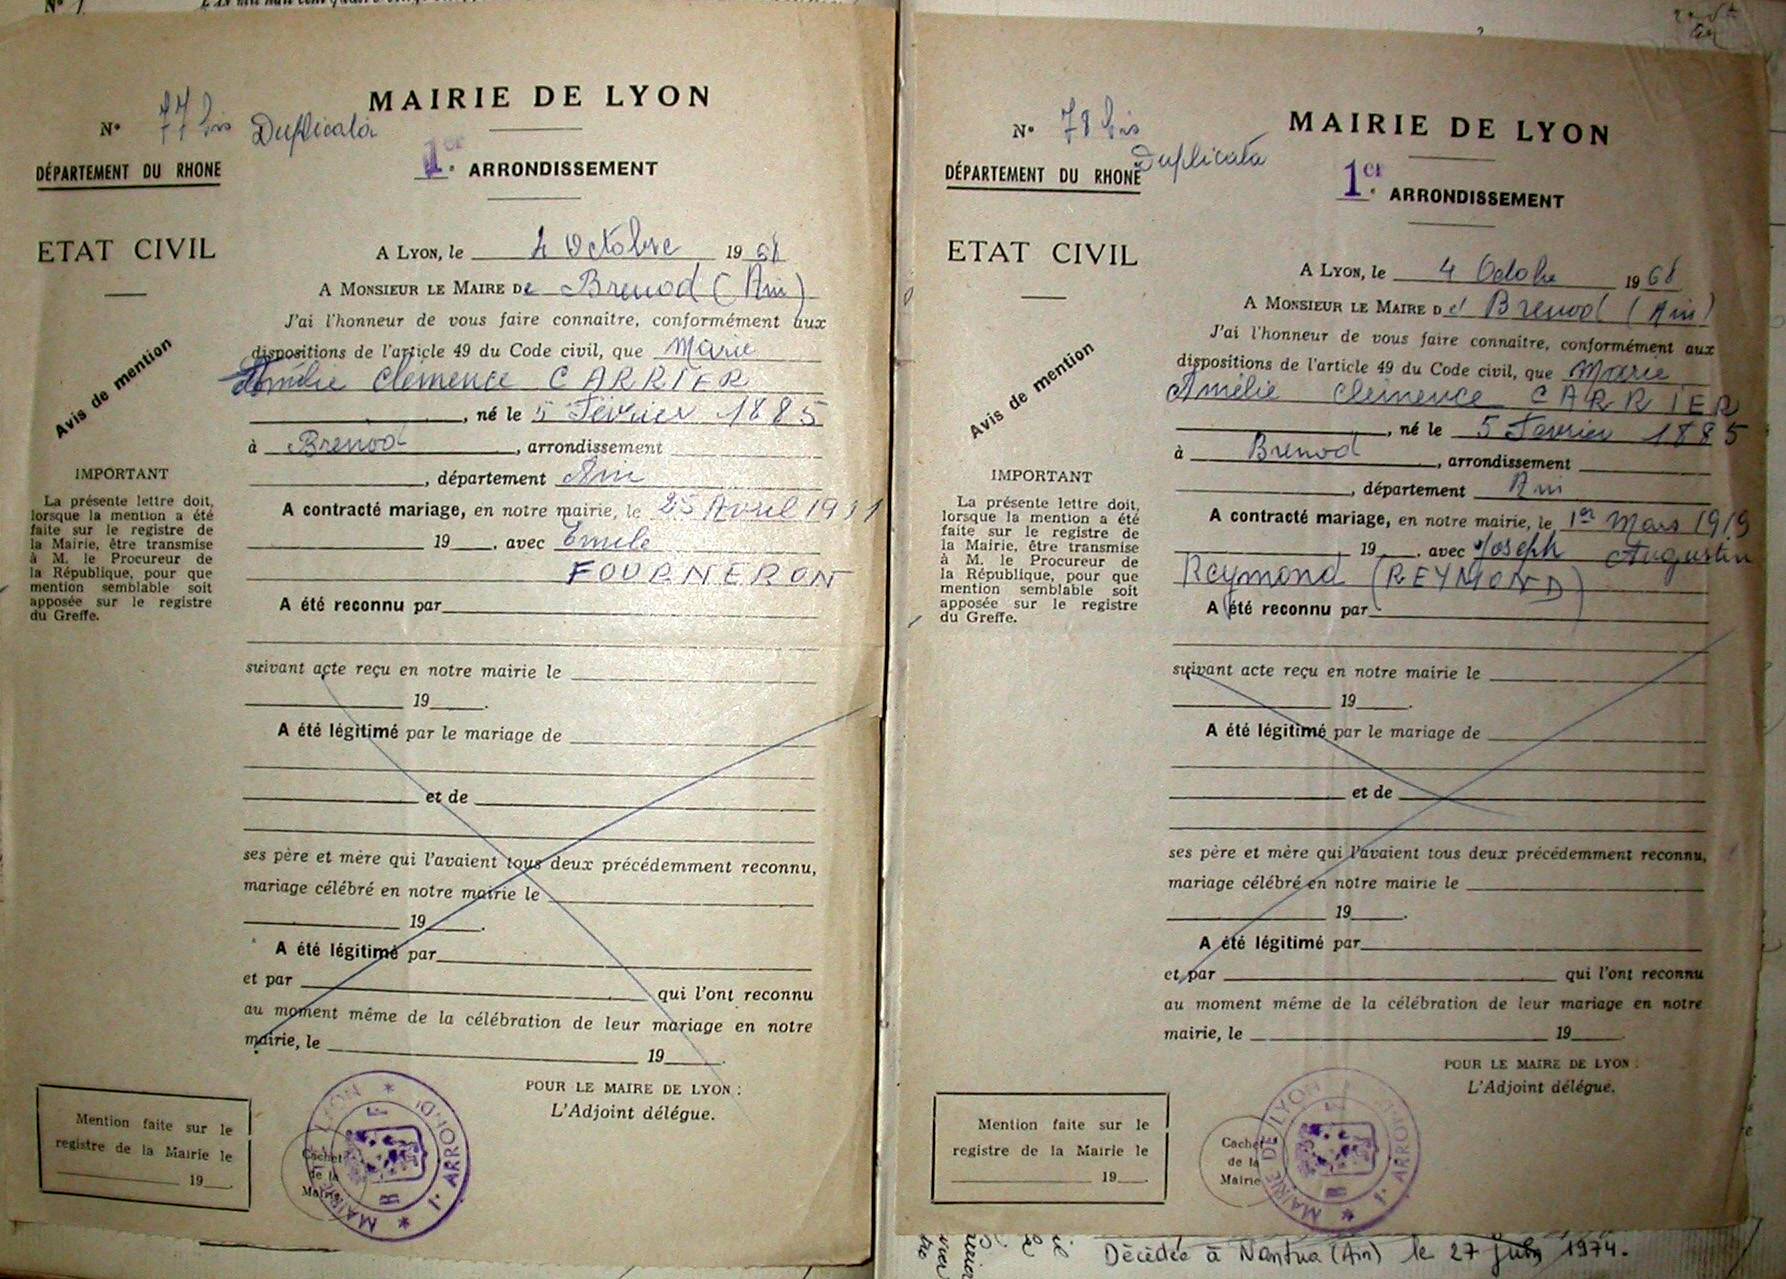 MAIRIE DE LYON
N° 77 bis Duplicata
DÉPARTEMENT DU RHONE
1er ARRONDISSEMENT
ETAT CIVIL
A LYON, le 4 Octobre 1968
A MONSIEUR LE MAIRE De Brenod (Ain)
J'ai l'honneur de vous faire connaître, conformément aux
dispositions de l'article 49 du Code civil, que Marie
Amélie Clémence CARRIER
, né le 5 Février 1885
à Brenod, arrondissement
, département Ain
A contracté mariage, en notre mairie, le 25 Avril 1911
19 , avec Emile
FOURNERON
A été reconnu par
suivant acte reçu en notre mairie le
19 .
A été légitimé par le mariage de
et de
ses père et mère qui l'avaient tous deux précédemment reconnu,
mariage célébré en notre mairie le
19 .
A été légitimé par
et par qui l'ont reconnu
au moment même de la célébration de leur mariage en notre
mairie, le 19 .
POUR LE MAIRE DE LYON :
L'Adjoint délégue.
Avis de mention
IMPORTANT
La présente lettre doit,
lorsque la mention a été
faite sur le registre de
la Mairie, être transmise
à M. le Procureur de
la République, pour que
mention semblable soit
apposée sur le registre
du Greffe.
Mention faite sur le
registre de la Mairie le
19 .
Cachet
de la
Mairie
MAIRIE DE LYON * 1. ARROND^t *
MAIRIE DE LYON
N° 78 bis
Duplicata
DÉPARTEMENT DU RHONE
1er ARRONDISSEMENT
ETAT CIVIL
A LYON, le 4 Octobre 1968
A MONSIEUR LE MAIRE De Brenod (Ain)
J'ai l'honneur de vous faire connaître, conformément aux
dispositions de l'article 49 du Code civil, que Marie
Amélie Clémence CARRIER
, né le 5 Fevrier 1885
à Brenod, arrondissement
, département Ain
A contracté mariage, en notre mairie, le 1er Mars 1919
19 , avec Joseph Augustin
Reymond (REYMOND)
A été reconnu par
suivant acte reçu en notre mairie le
19 .
A été légitimé par le mariage de
et de
ses père et mère qui l'avaient tous deux précédemment reconnu,
mariage célébré en notre mairie le
19 .
A été légitimé par
et par qui l'ont reconnu
au moment même de la célébration de leur mariage en notre
mairie, le 19 .
POUR LE MAIRE DE LYON :
L'Adjoint délégue.
Avis de mention
IMPORTANT
La présente lettre doit,
lorsque la mention a été
faite sur le registre de
la Mairie, être transmise
à M. le Procureur de
la République, pour que
mention semblable soit
apposée sur le registre
du Greffe.
Mention faite sur le
registre de la Mairie le
19 .
Cachet
de la
Mairie
MAIRIE DE LYON * 1. ARROND^t *
Décédée à Nantua (Ain) le 27 juin 1974.